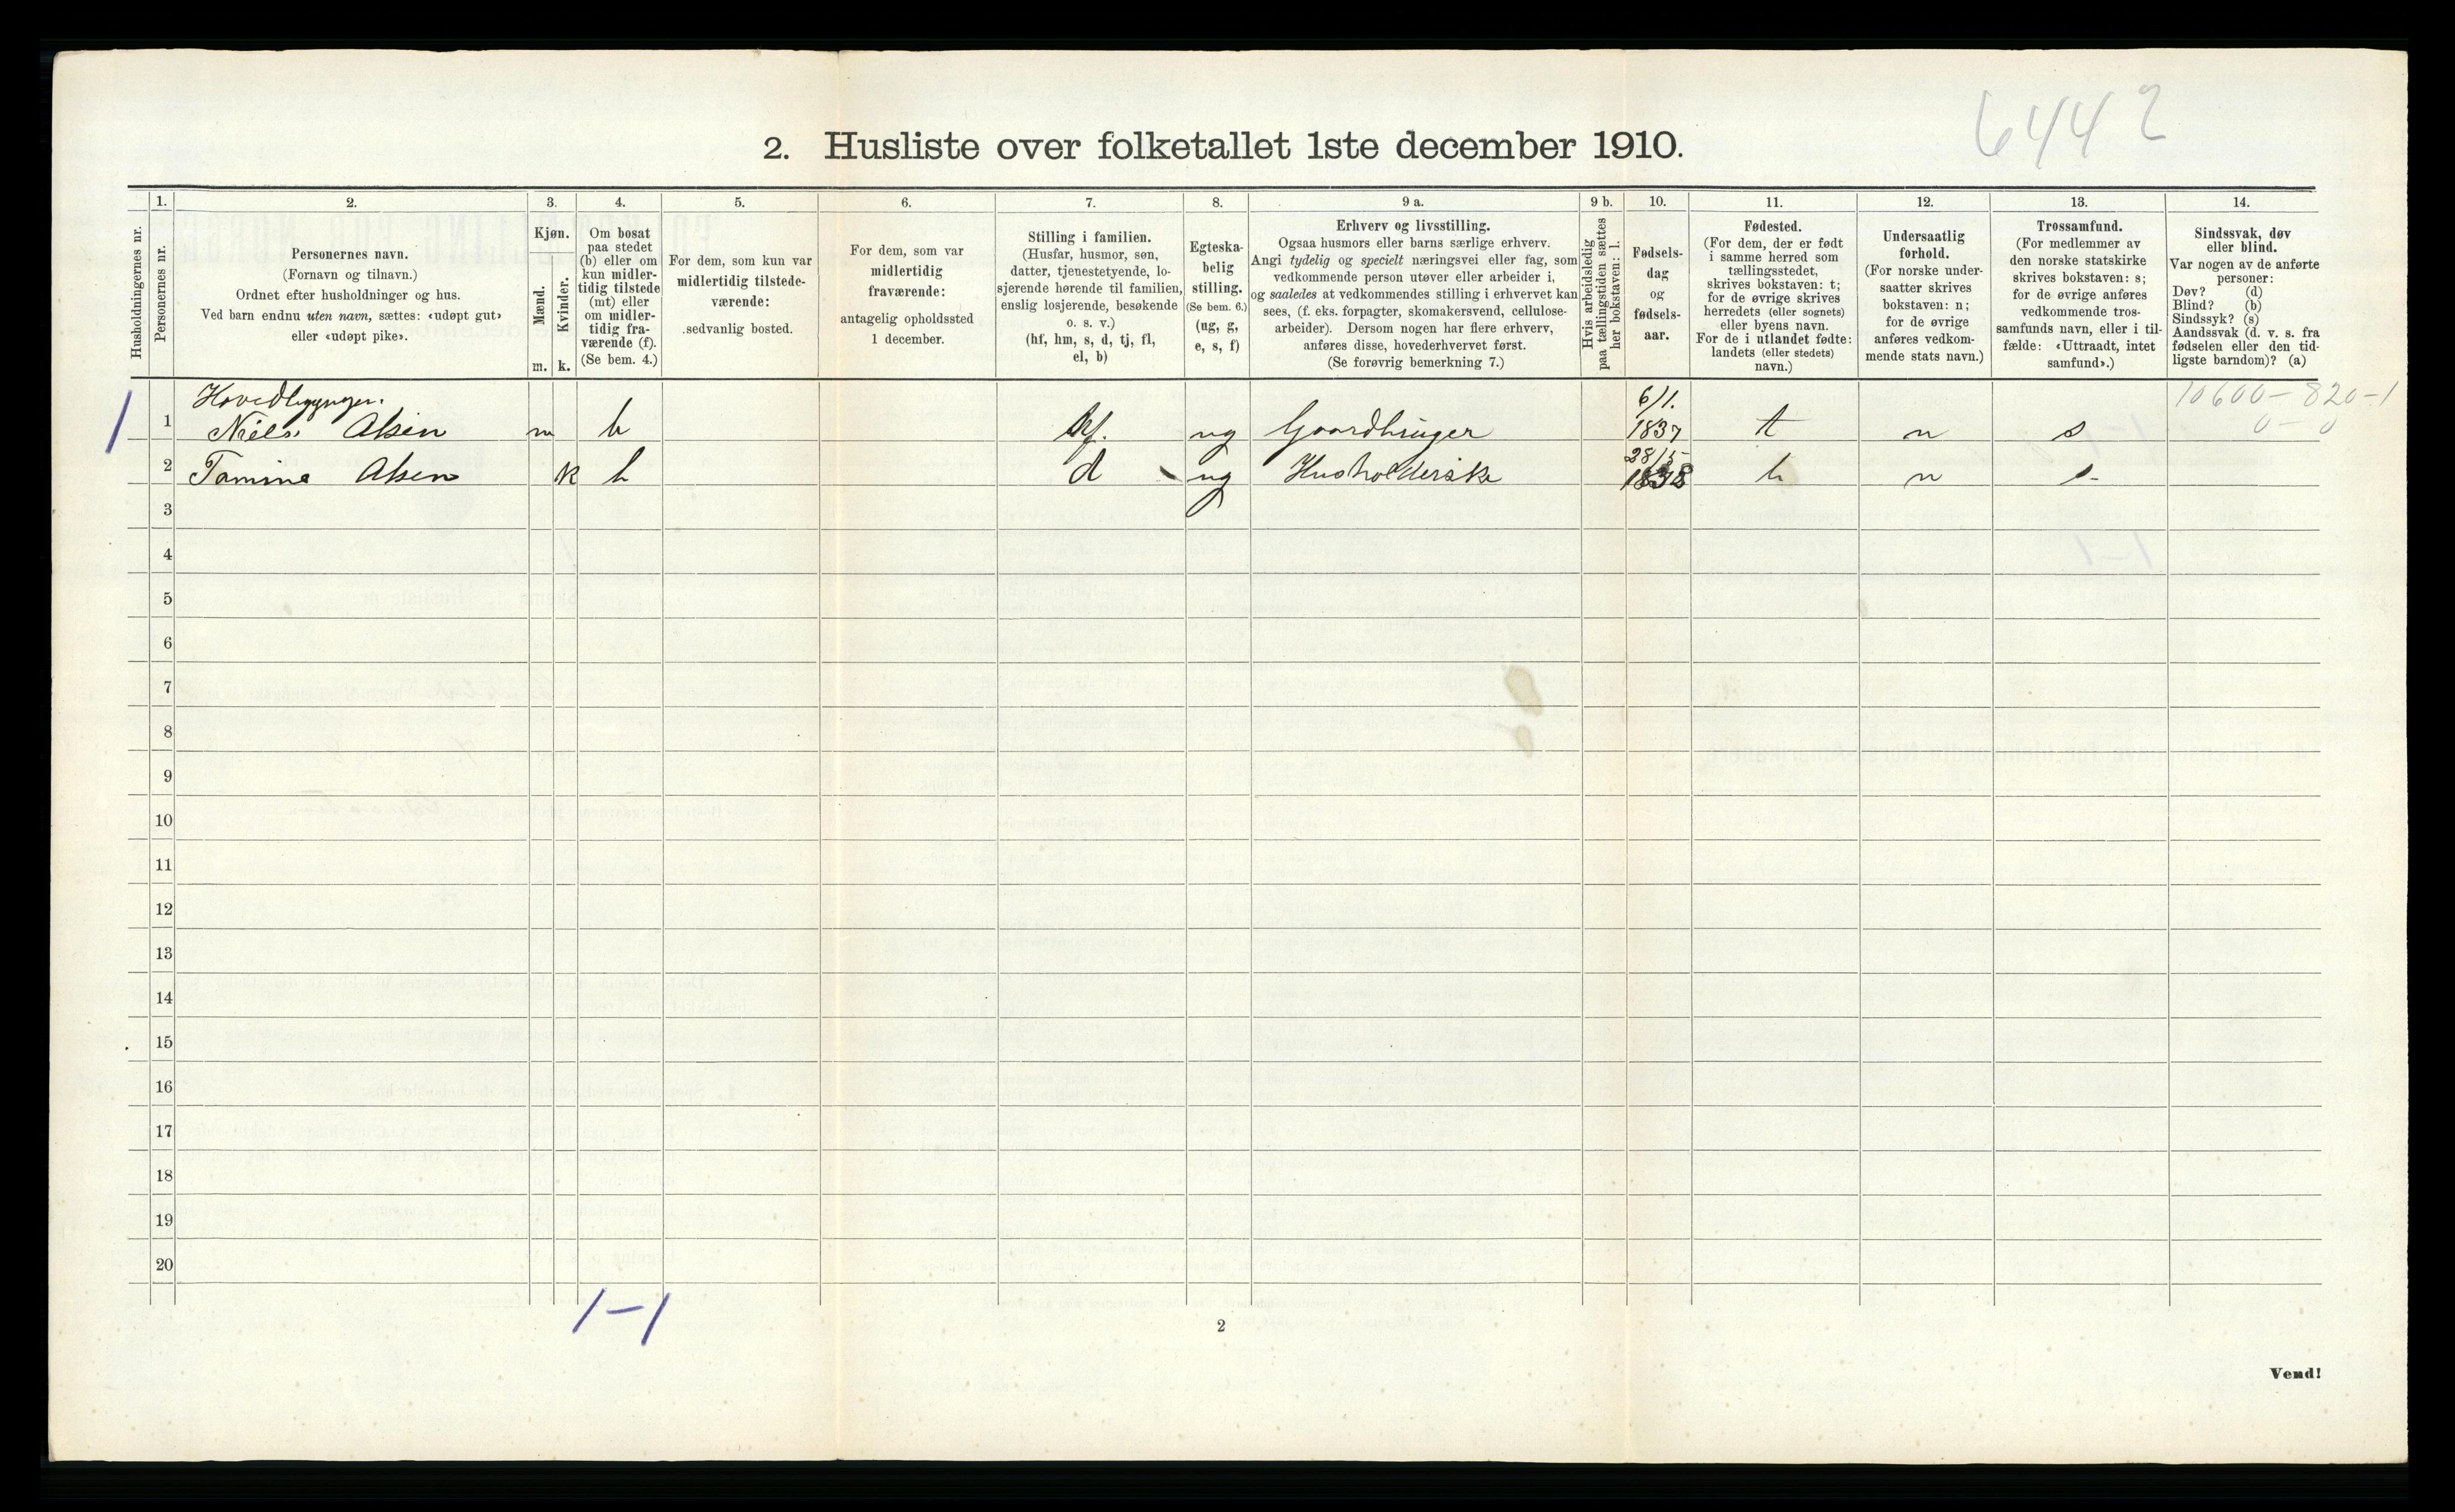 6442
2. Husliste over folketallet 1ste december 1910.
Husholdningernes nr.
1.
Personernes nr.
2.
Personernes navn.
(Fornavn og tilnavn.)
Ordnet efter husholdninger og hus.
Ved barn endnu uten navn, sættes: «udøpt gut»
eller «udøpt pike».
3.
Kjøn.
Mænd.
Kvinder.
m. k.
4.
Om bosat
paa stedet
(b) eller om
kun midler-
tidig tilstede
(mt) eller
om midler-
tidig fra-
værende (f).
(Se bem. 4.)
5.
For dem, som kun var
midlertidig tilstede-
værende:
sedvanlig bosted.
6.
For dem, som var
midlertidig
fraværende:
antagelig opholdssted
1 december.
7.
Stilling i familien.
(Husfar, husmor, søn,
datter, tjenestetyende, lo-
sjerende hørende til familien,
enslig losjerende, besøkende
o. s. v.)
(hf, hm, s, d, tj, fl,
el, b)
8.
Egteska-
belig
stilling.
(Se bem. 6.)
(ug, g,
e, s, f)
9 a.
Erhverv og livsstilling.
Ogsaa husmors eller barns særlige erhverv.
Angi tydelig og specielt næringsvei eller fag, som
vedkommende person utøver eller arbeider i,
og saaledes at vedkommendes stilling i erhvervet kan
sees, (f. eks. forpagter, skomakersvend, cellulose-
arbeider). Dersom nogen har flere erhverv,
anføres disse, hovederhvervet først.
(Se forøvrig bemerkning 7.)
9 b.
Hvis arbeidsledig
paa tællingstiden sættes
her bokstaven: l.
10.
Fødsels-
dag
og
fødsels-
aar.
11.
Fødested.
(For dem, der er født
i samme herred som
tællingsstedet,
skrives bokstaven: t;
for de øvrige skrives
herredets (eller sognets)
eller byens navn.
For de i utlandet fødte:
landets (eller stedets)
navn.)
12.
Undersaatlig
forhold.
(For norske under-
saatter skrives
bokstaven: n;
for de øvrige
anføres vedkom-
mende stats navn.)
13.
Trossamfund.
(For medlemmer av
den norske statskirke
skrives bokstaven: s;
for de øvrige anføres
vedkommende tros-
samfunds navn, eller i til-
fælde: «Uttraadt, intet
samfund».)
14.
Sindssvak, døv
eller blind.
Var nogen av de anførte
personer:
Døv? (d)
Blind? (b)
Sindssyk? (s)
Aandssvak (d. v. s. fra
fødselen eller den tid-
ligste barndom)? (a)
6/1. 10600-820-1
1 1 Niels Alsen m b hf. ug 1837 t n s 0-0
28/5
2 Tomine Alsen k b d ug 1838 n s.
3
4
5
6
7
8
9
10
11
12
13
14
15
16
17
18
19
20
1-1
2
Vend!